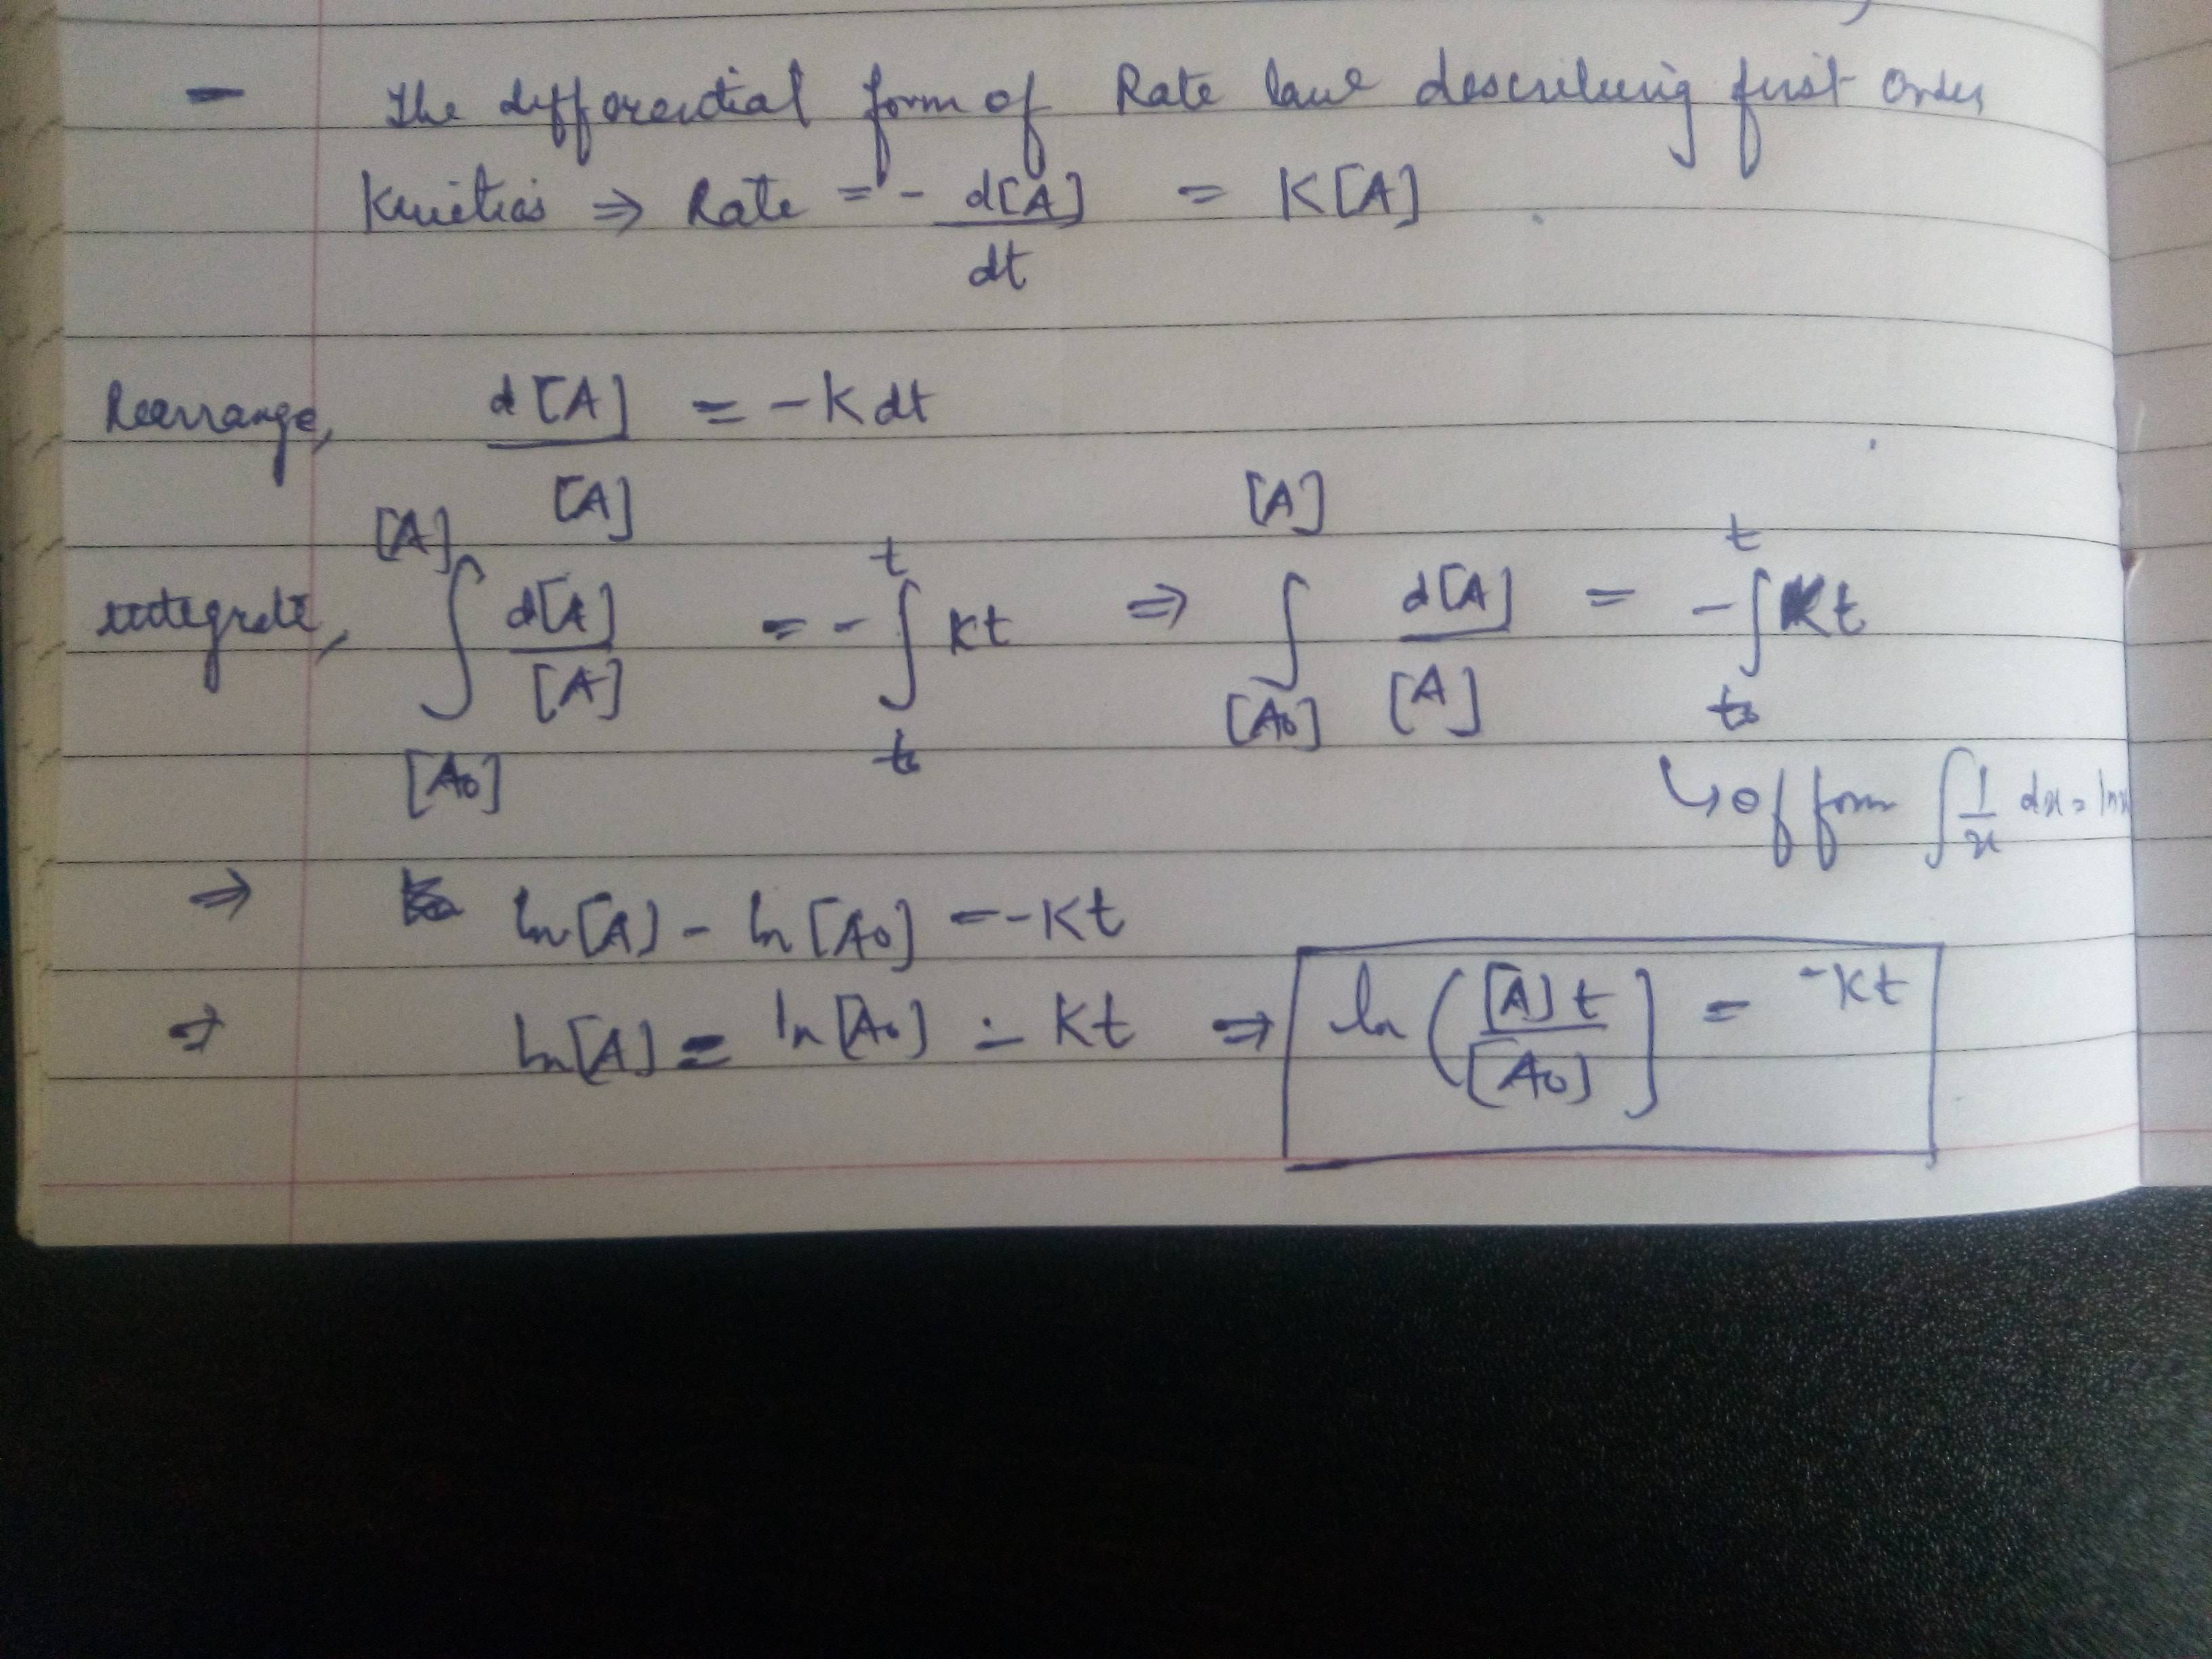 - The differential form of Rate law describing first order
Kinetics ⇒ Rate = - d[A]/dt = K[A]
Rearrange, d[A]/[A] = -K dt
integrate, ∫_[A₀]^[A] d[A]/[A] = - ∫_t₀^t Kt ⇒ ∫_[A₀]^[A] d[A]/[A] = - ∫_t₀^t Kt
↳ of form ∫ 1/x dx = ln x
⇒ ln[A] - ln[A₀] = -Kt
⇒ ln[A] = ln[A₀] - Kt ⇒ ln([A]t/[A₀]] = -Kt